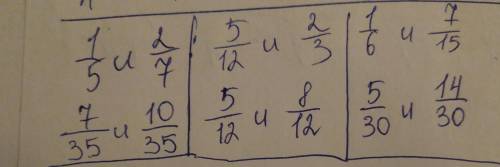 1/5 и 2/7 | 5/12 и 2/3 | 1/6 и 7/15
7/35 и 10/35 | 5/12 и 8/12 | 5/30 и 14/30